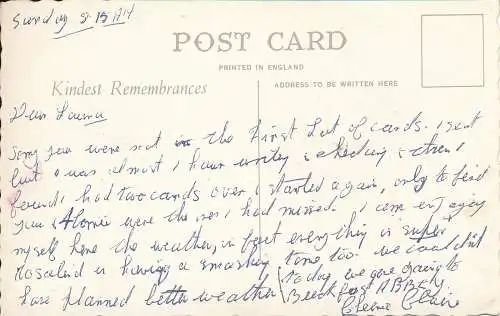 Sunday
POST CARD
PRINTED IN ENGLAND
Kindest Remembrances
ADDRESS TO BE WRITTEN HERE
Dear
Sorry you were not in the First Lot of cards. I sent
but I was almost 1 hour writing &
found I had two cards over I started again, only to find
you & were the ones I had missed. I am enjoying
myself here the weather, in fact everything is super
Rosalind is having a smashing time too. We couldn't
have planned better weather
Today we are going to
ABBEY
Claire